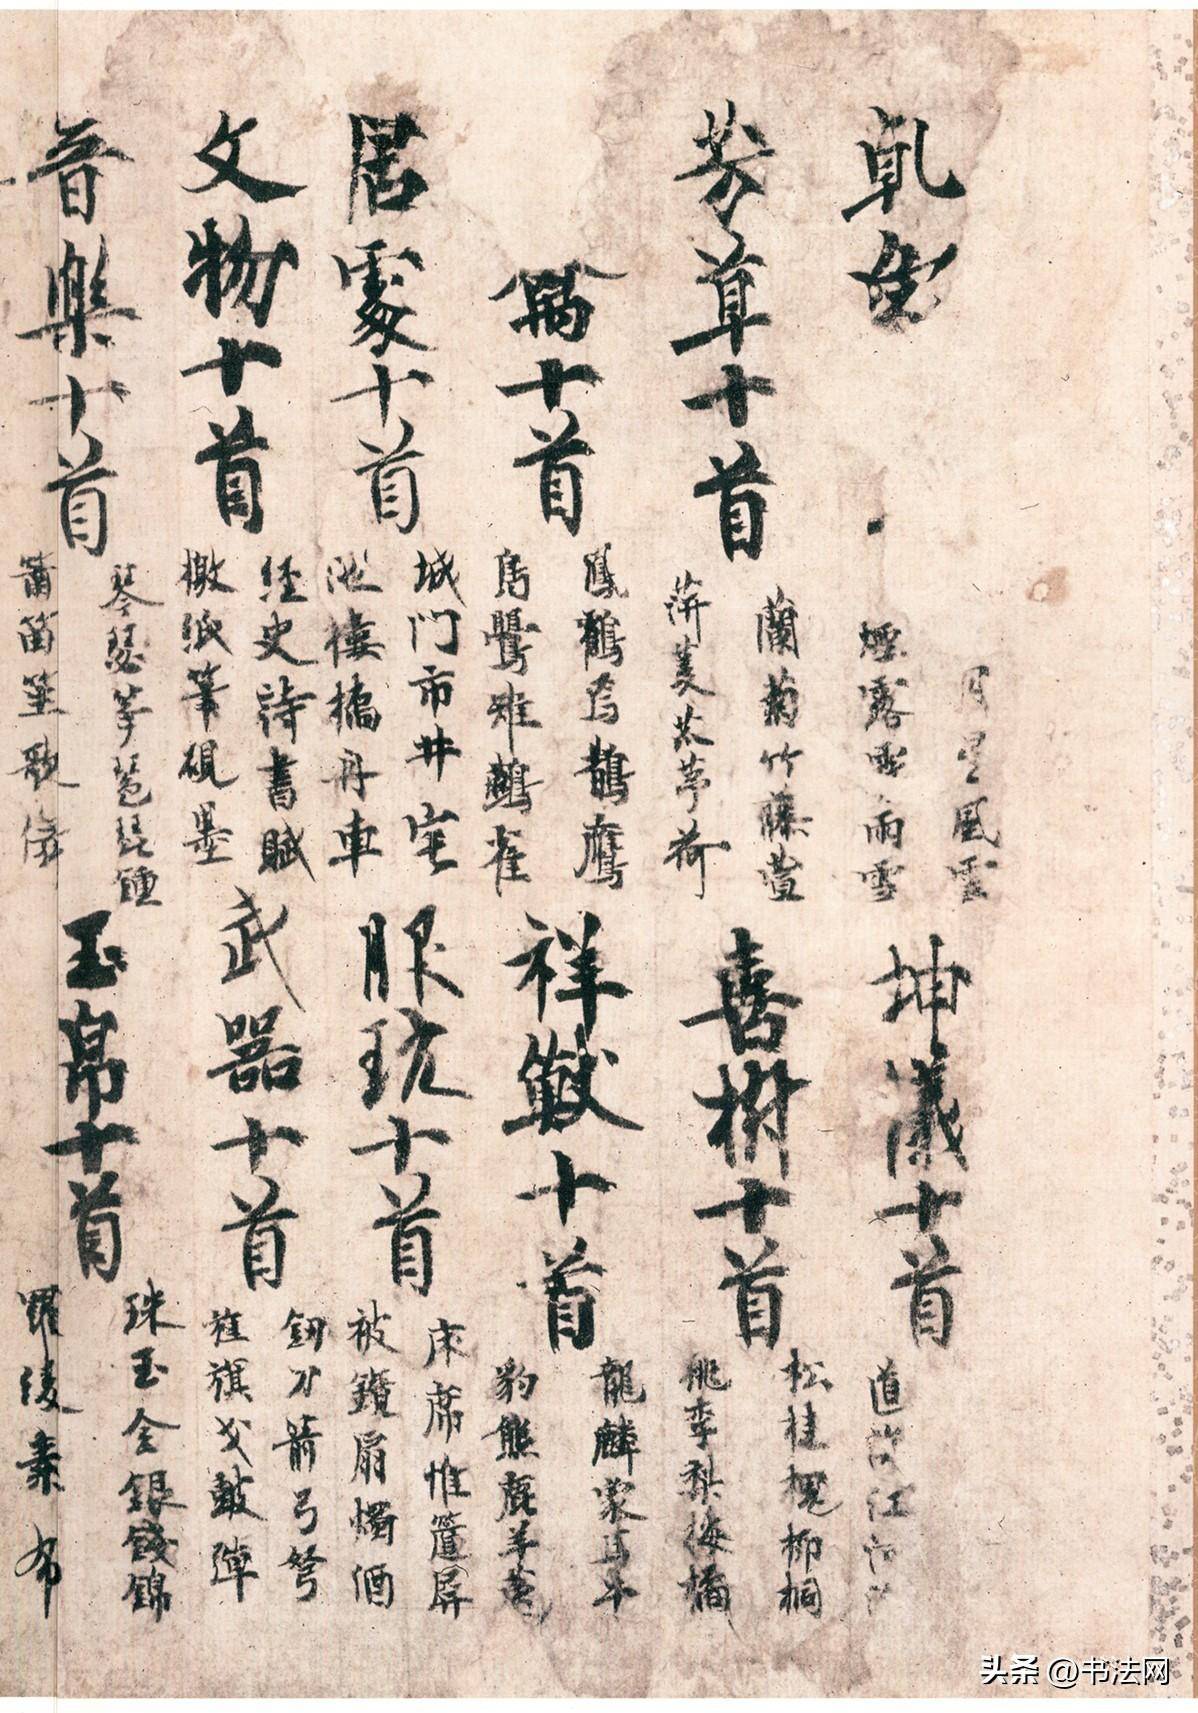 乹
月星風雲
煙露霧雨雪
坤儀十首
江河
芳草十首
蘭菊竹藤萱
萍菱苽茅荷
嘉樹十首
松桂槐柳桐
桃李梨梅橘
禽十首
鳳鶴烏鵲鷹
鳧鶯雉鷰雀
祥獣十首
龍麟象馬牛
豹熊鹿羊兔
居處十首
城門市井宅
池樓橋舟車
服玩十首
床席帷簾屏
被鏡扇燭酒
文物十首
経史詩書賦
檄紙筆硯墨
武器十首
釼刀箭弓弩
旌旗戈鼓弾
音樂十首
琴瑟箏琵琶鍾
簫笛笙歌儛
玉帛十首
珠玉金銀錢錦
羅綾素布
头条 @书法网